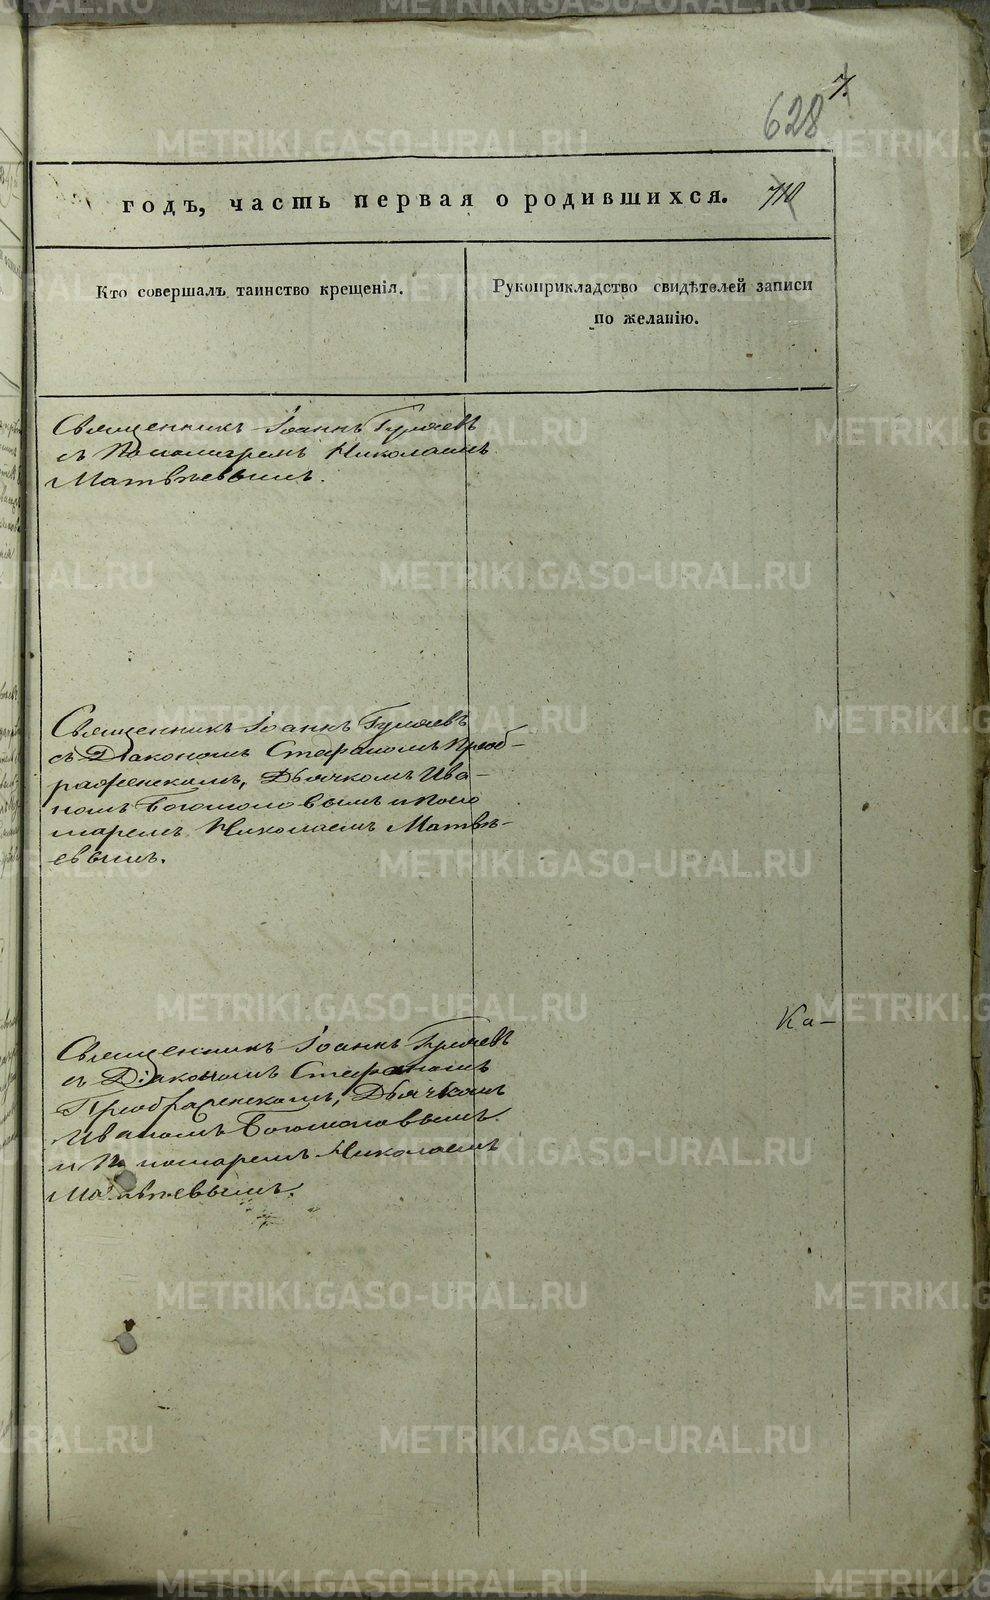 7.
628
годъ, часть первая о родившихся. 710
Кто совершалъ таинство крещенія.
Рукоприкладство свидѣтелей записи
по желанію.
Священникъ Іоаннъ Гуляевъ
съ Пономаремъ Николаемъ
Матвѣевымъ.
Священникъ Іоаннъ Гуляевъ
съ Діакономъ Стефаномъ Преоб-
раженскимъ, Дьячкомъ Ива-
номъ Богомоловымъ и Поно
маремъ Николаемъ Матвѣ-
евымъ.
Ка-
Священникъ Іоаннъ Гуляевъ
съ Діакономъ Стефаномъ
Преображенскимъ, Дьячкомъ
Иваномъ Богомоловымъ
и Пономаремъ Николаемъ
Матвѣевымъ.
METRIKI.GASO-URAL.RU